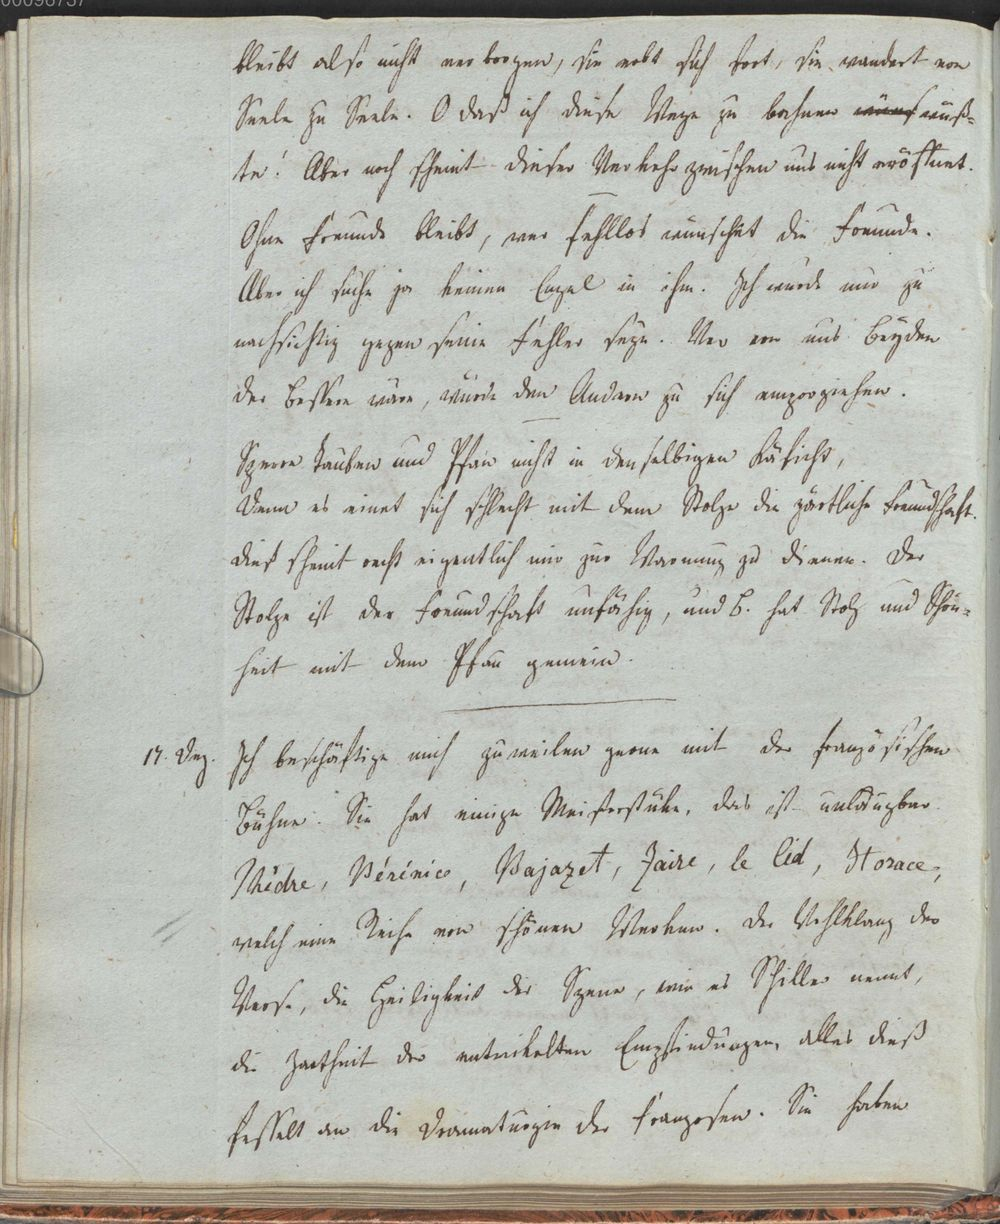 00096737
bleibt also nicht verborgen, sie erbt sich fort, sie wandert von
Seele zu Seele. O daß ich diese Wege zu bahnen wüns wüß-
te! Aber noch scheint dieser Verkehr zwischen uns nicht eröffnet.
Ohne Freunde bleibt, wer fehllos wünschet die Freunde.
Aber ich suche ja keinen Engel in ihm. Ich würde nur zu
nachsichtig gegen seine Fehler seyn. Wer von uns Beyden
der Bessere wäre, würde den Andern zu sich emporziehen.
Sperre Tauben und Pfau nicht in denselbigen Käficht,
Denn es einet sich schlecht mit dem Stolze die zärtliche Freundschaft.
Dieß scheint recht eigentlich mir zur Warnung zu dienen. Der
Stolze ist der Freundschaft unfähig, und B. hat Stolz und Schön-
heit mit dem Pfau gemein.
17. Dez. Ich beschäftige mich zuweilen gerne mit der französischen
Bühne. Sie hat einige Meisterstüke, das ist unläugbar.
Phèdre, Bérénice, Bajazet, Zaire, le Cid, Horace,
welch eine Reihe von schönen Werken. Der Wohlklang der
Verse, die Heiligkeit der Szene, wie es Schiller nennt,
die Zartheit der entwikelten Empfindungen, alles dieß
fesselt an die Dramaturgie der Franzosen. Sie haben